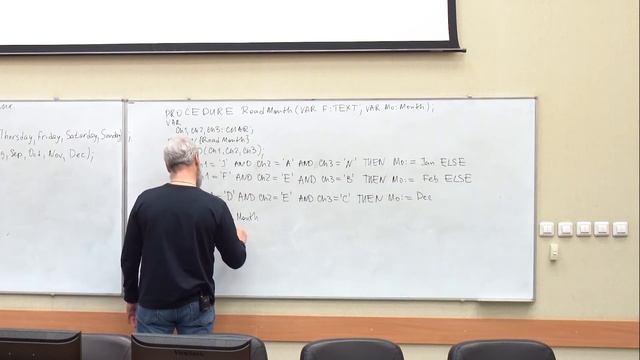 Thursday, Friday, Saturday, Sunday
Sep, Oct, Nov, Dec);
PROCEDURE ReadMonth(VAR F:TEXT; VAR Mo:Month);
VAR
Ch1, Ch2, Ch3: CHAR;
{ReadMonth}
(Ch1, Ch2, Ch3);
= 'J' AND Ch2 = 'A' AND Ch3 = 'N' THEN Mo:= Jan ELSE
= 'F' AND Ch2 = 'E' AND Ch3 = 'B' THEN Mo:= Feb ELSE
'D' AND Ch2 = 'E' AND Ch3 = 'C' THEN Mo:= Dec
Month